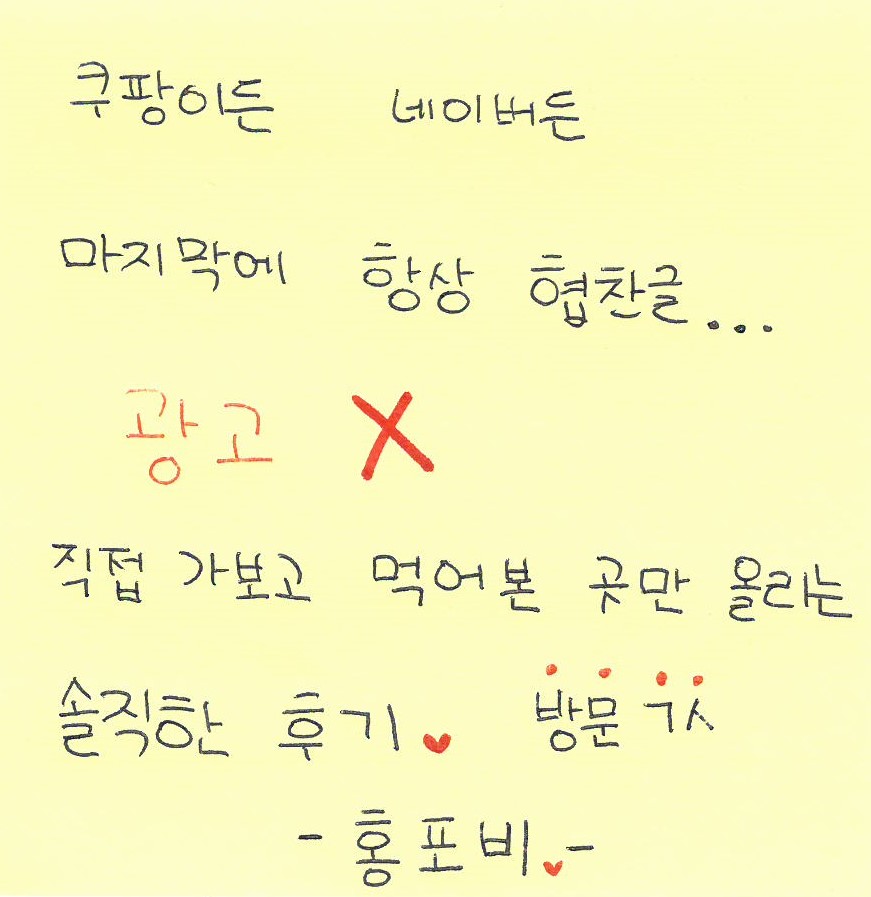 쿠팡이든 네이버든
마지막에 항상 협찬글...
광고 X
직접 가보고 먹어본 곳만 올리는
솔직한 후기♥ 방문 ㄱㅅ
- 홍포비♥-